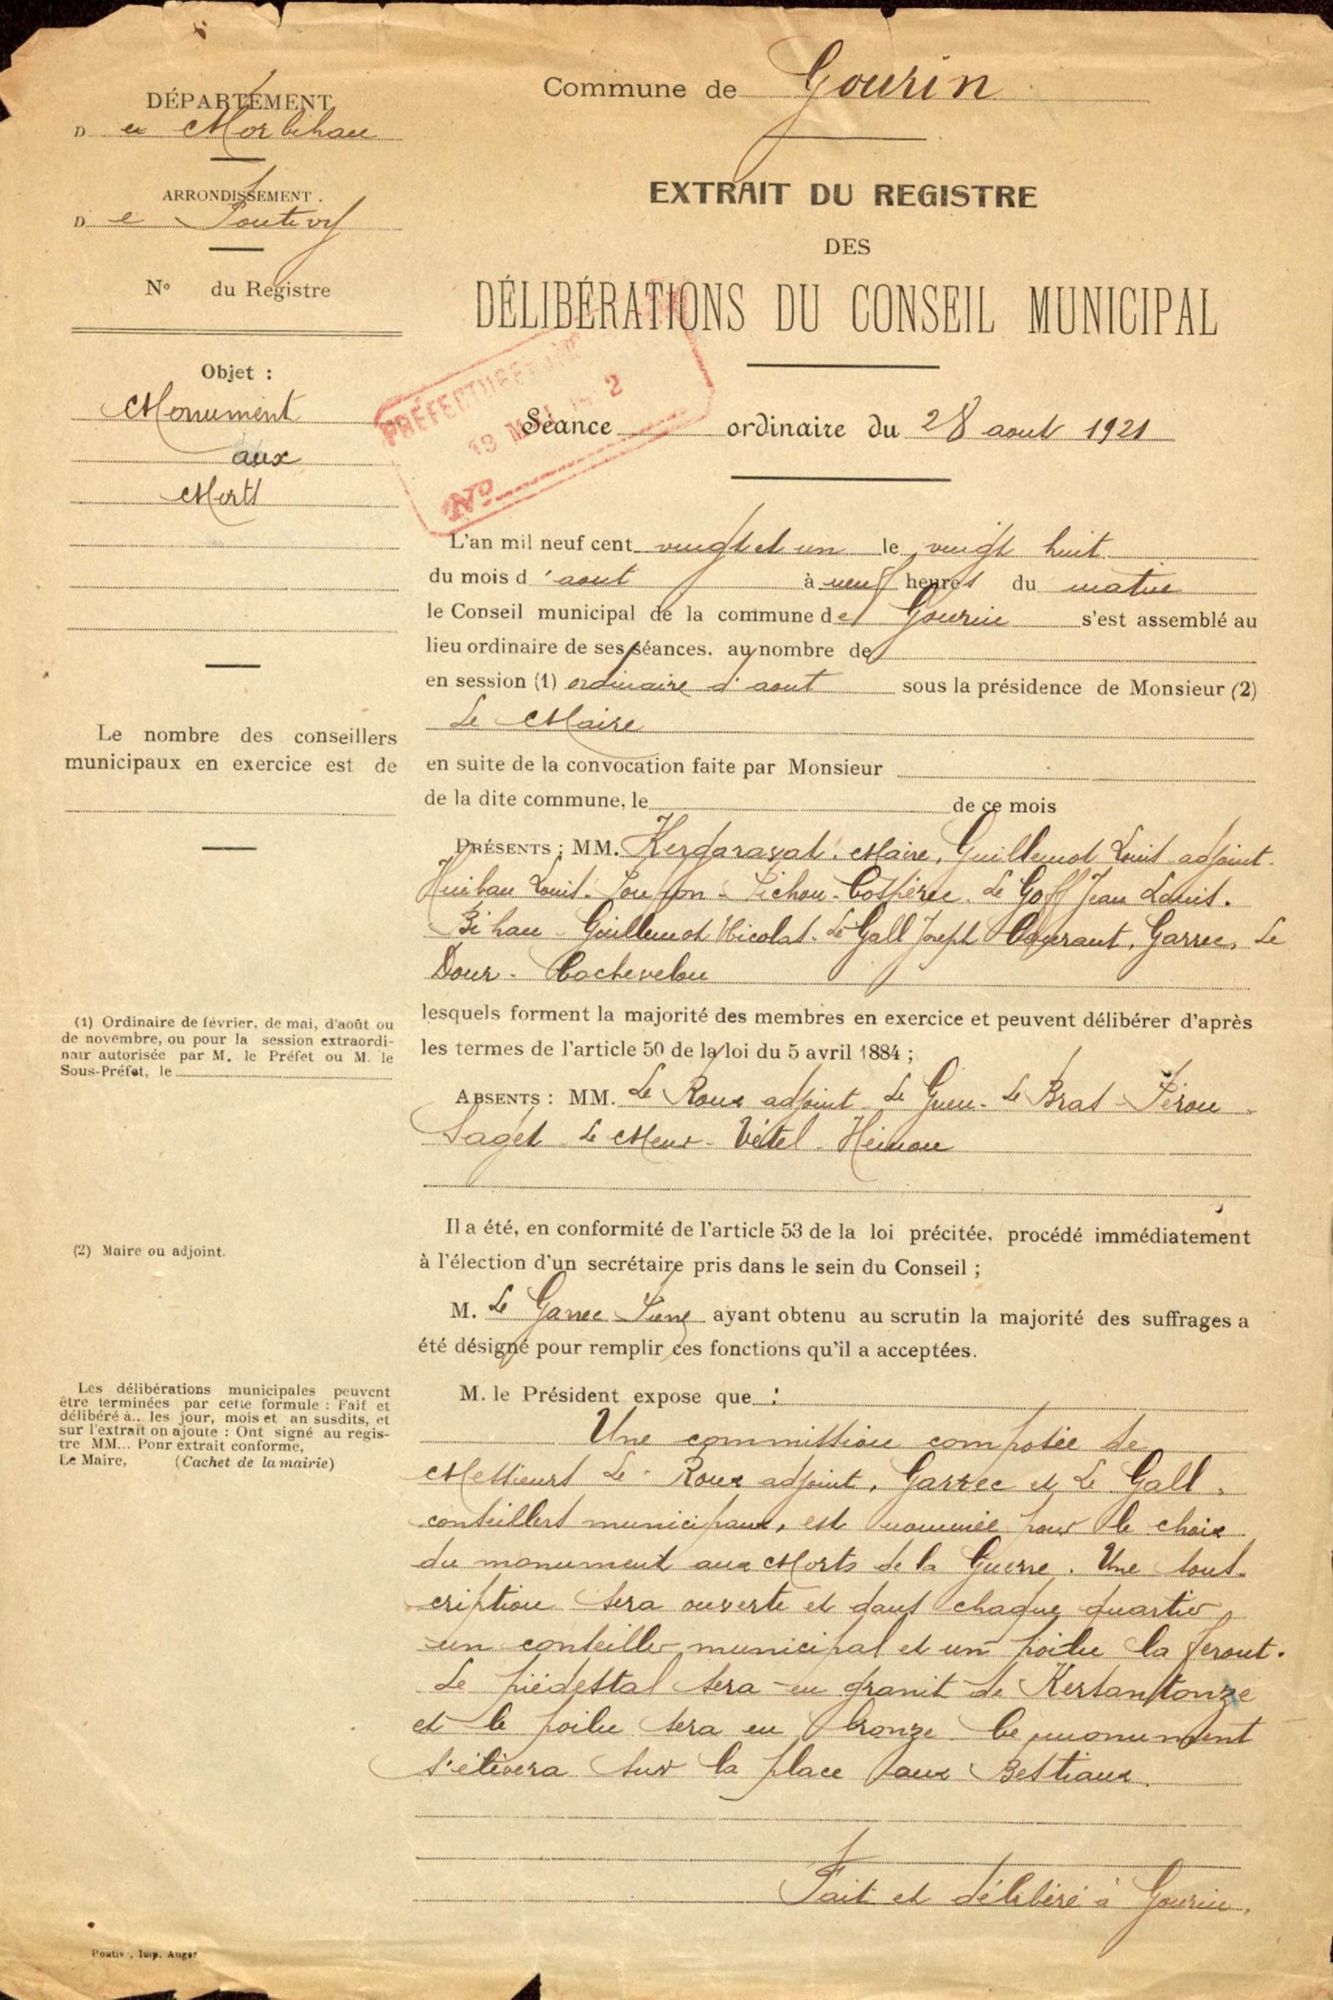 DÉPARTEMENT
Du Morbihan
ARRONDISSEMENT.
De Pontivy
No du Registre
Objet :
Monument
aux
Morts
Le nombre des conseillers
municipaux en exercice est de
(1) Ordinaire de février, de mai, d'août ou
de novembre, ou pour la session extraordi-
nair autorisée par M. le Préfet ou M. le
Sous-Préfet, le
(2) Maire ou adjoint.
Les délibérations municipales peuvent
être terminées par cette formule : Fait et
délibéré à... les jour, mois et an susdits, et
sur l'extrait on ajoute : Ont signé au regis-
tre MM... Ponr extrait conforme,
Le Maire, (Cachet de la mairie)
Pontiv, Imp. Anger
Commune de Gourin
EXTRAIT DU REGISTRE
DES
DÉLIBÉRATIONS DU CONSEIL MUNICIPAL
PRÉFECTURE
19 2
No
Séance ordinaire du 28 aout 1921
L'an mil neuf cent vingt et un le vingt huit
du mois d'aout à neuf heures du matin
le Conseil municipal de la commune de Gourin s'est assemblé au
lieu ordinaire de ses séances, au nombre de
en session (1) ordinaire d'aout sous la présidence de Monsieur (2)
Le Maire
en suite de la convocation faite par Monsieur
de la dite commune, le de ce mois
PRÉSENTS : MM. Kerdaravat, Maire, Guillemot Louis adjoint.
Huiban Louis. Pichon. Cospérec. Le Goff Jean Louis.
Bihan - Guillemot Nicolas. Le Gall Joseph Garrec, Le
Dour - Cochevelou
lesquels forment la majorité des membres en exercice et peuvent délibérer d'après
les termes de l'article 50 de la loi du 5 avril 1884 ;
ABSENTS : MM. Le Roux adjoint Le Guen - Le Bras - Pérou
Saget Le Meur - Vétel - Hémon
Il a été, en conformité de l'article 53 de la loi précitée, procédé immédiatement
à l'élection d'un secrétaire pris dans le sein du Conseil ;
M. Le Garrec Pierre ayant obtenu au scrutin la majorité des suffrages a
été désigné pour remplir ces fonctions qu'il a acceptées.
M. le Président expose que :
Une commission composée de
Messieurs Le Roux adjoint, Garrec et Le Gall,
conseillers municipaux, est nommée pour le choix
du monument aux Morts de la Guerre. Une sous-
cription sera ouverte et dans chaque quartier
un conseiller municipal et un poilu la feront.
Le piédestal sera en granit de Kersantonze
et le poilu sera en bronze. Ce monument
s'élèvera sur la place aux Bestiaux.
Fait et délibéré à Gourin,